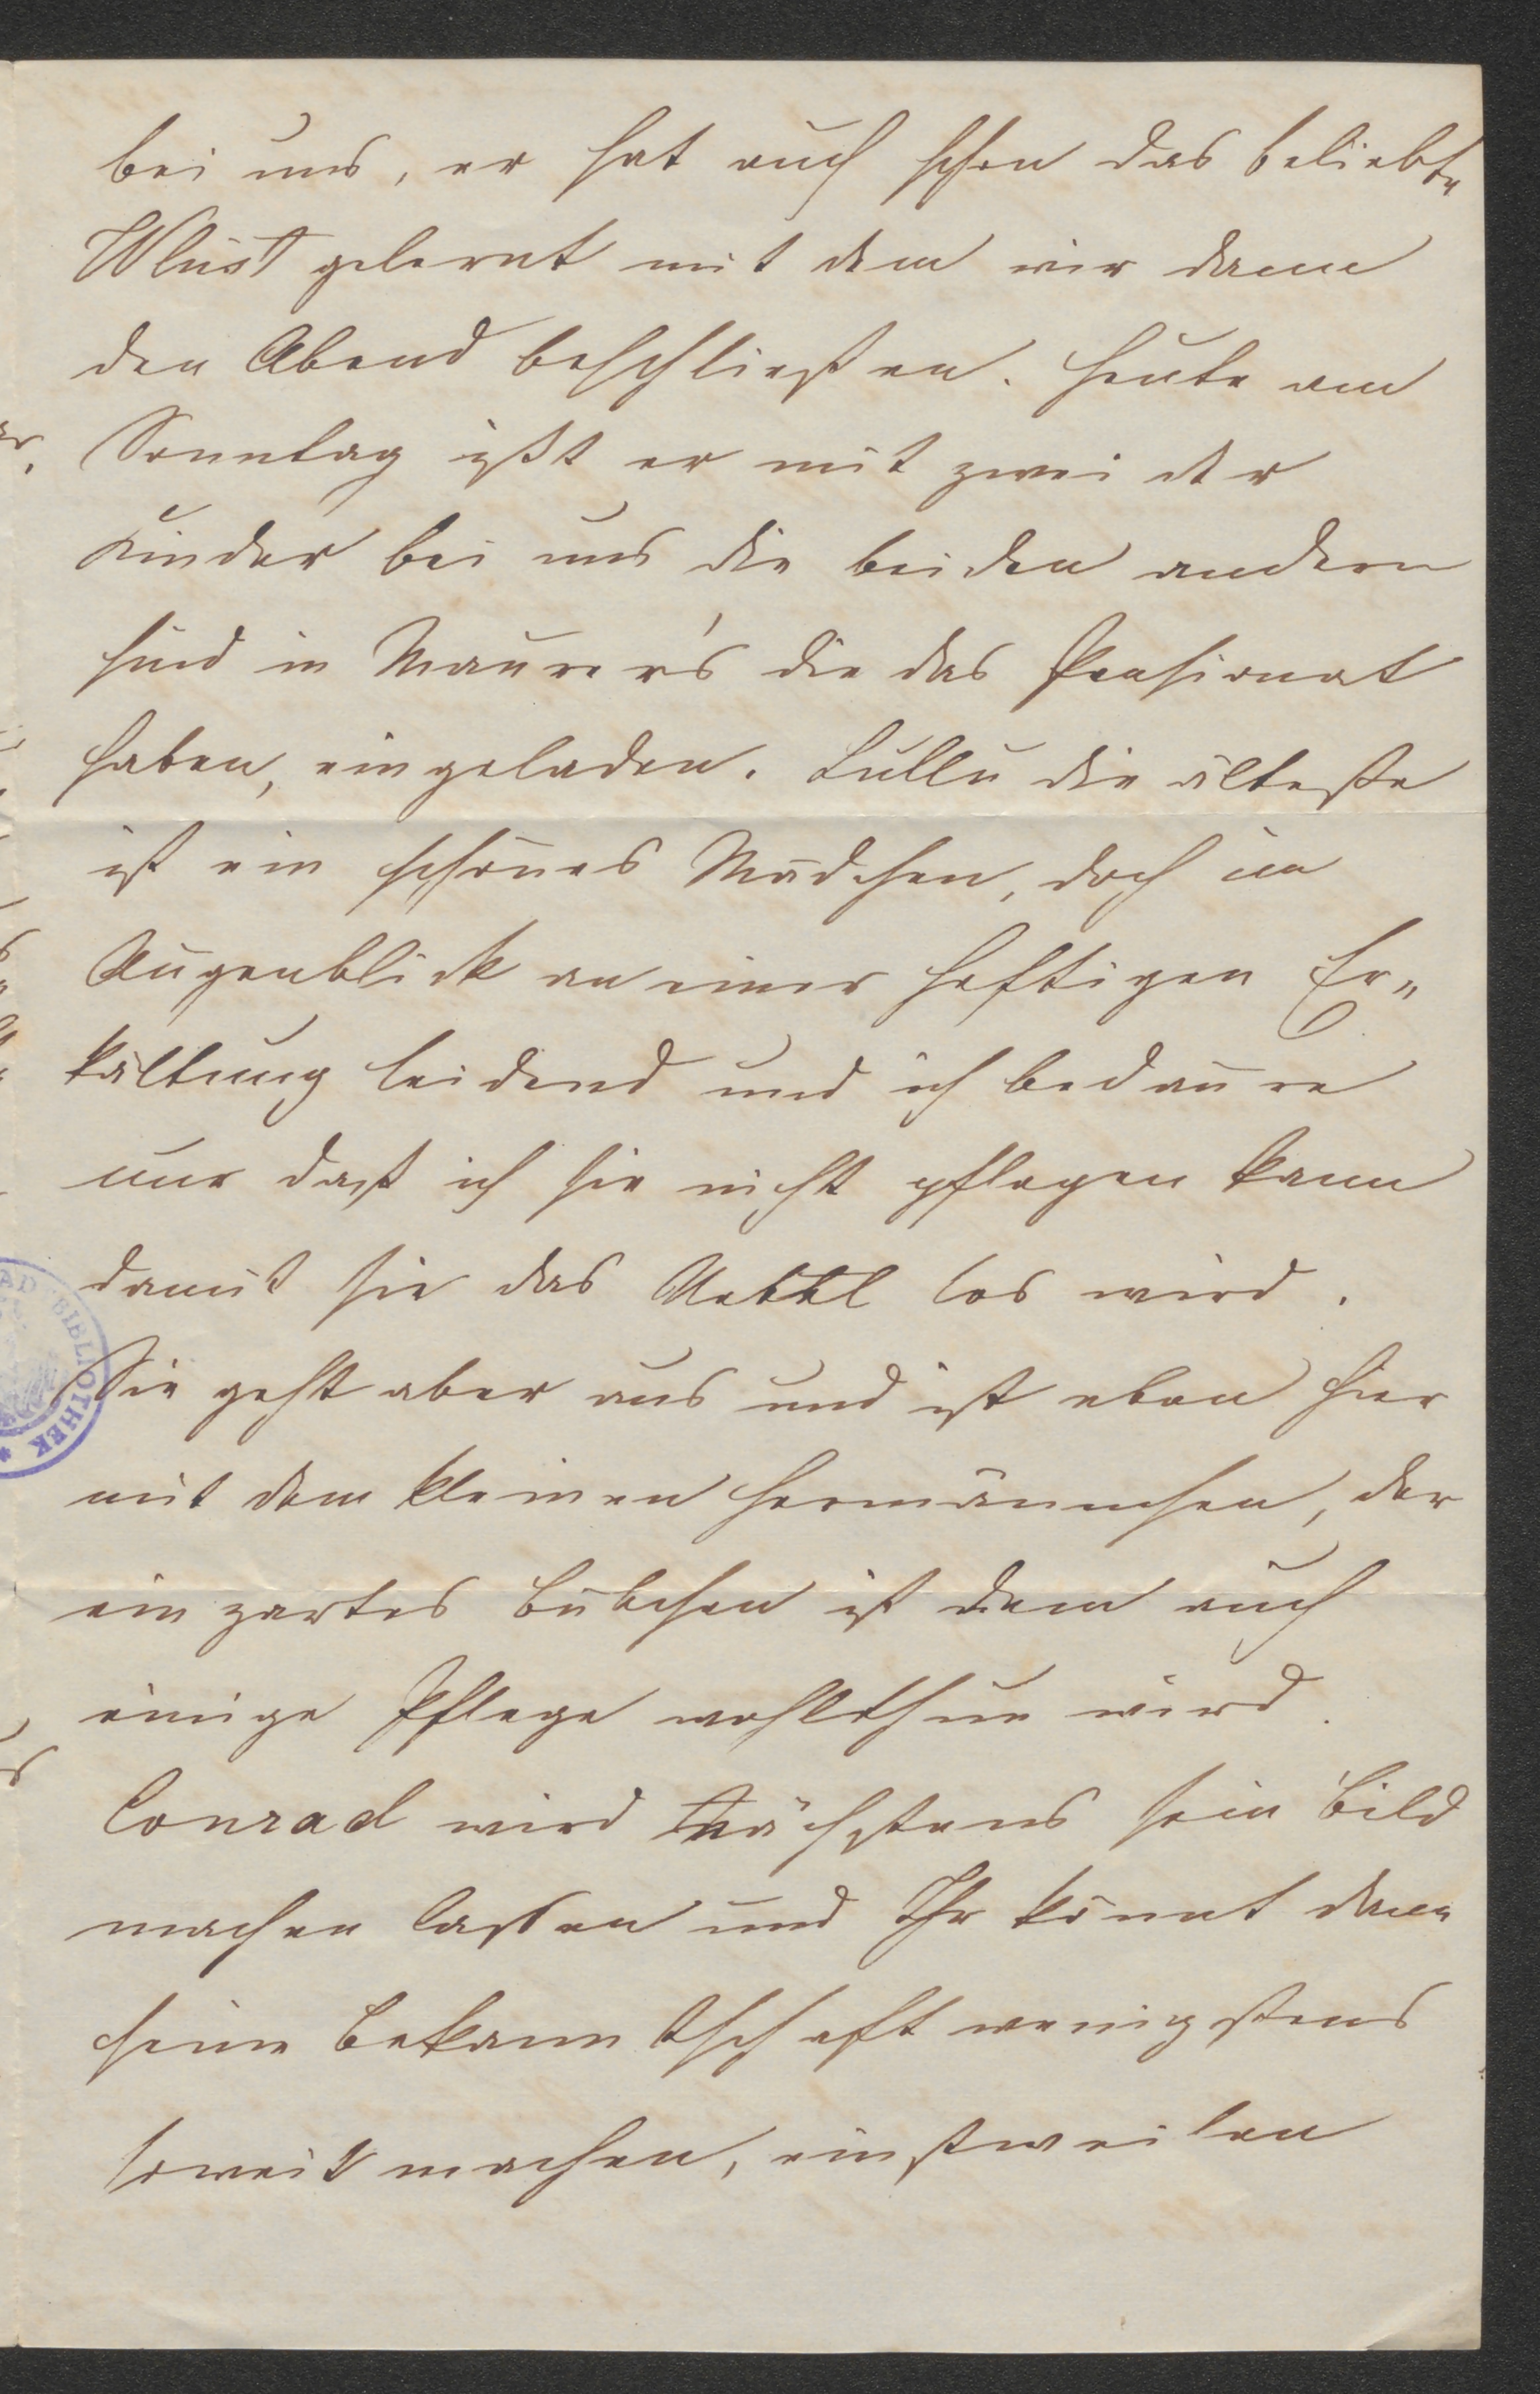 bei uns, er hat auch schon das beliebte
Whist gelernt mit dem wir dann
den Abend beschließen. Heute am
Sonntag ißt er mit zwei der
Kinder bei uns die beiden andern
sind in Maurer's die das Pensionat
haben, eingeladen. Lullu die älteste
ist ein schönes Mädchen, doch im
Augenblick an einer heftigen Er„
kältung leidend und ich bedaure
nur daß ich sie nicht pflegen kann
damit sie das Uebel los wird.
Sie geht aber aus und ist eben hier
mit dem kleinen Hermännchen, der
ein zartes Bübchen ist dem auch
einige Pflege wohlthun wird.
Conrad wird nächstens sein Bild
machen lassen und Ihr könnt dann
seine Bekanntschaft wenigstens
soweit machen, einstweilen
BIBLIOTHEK